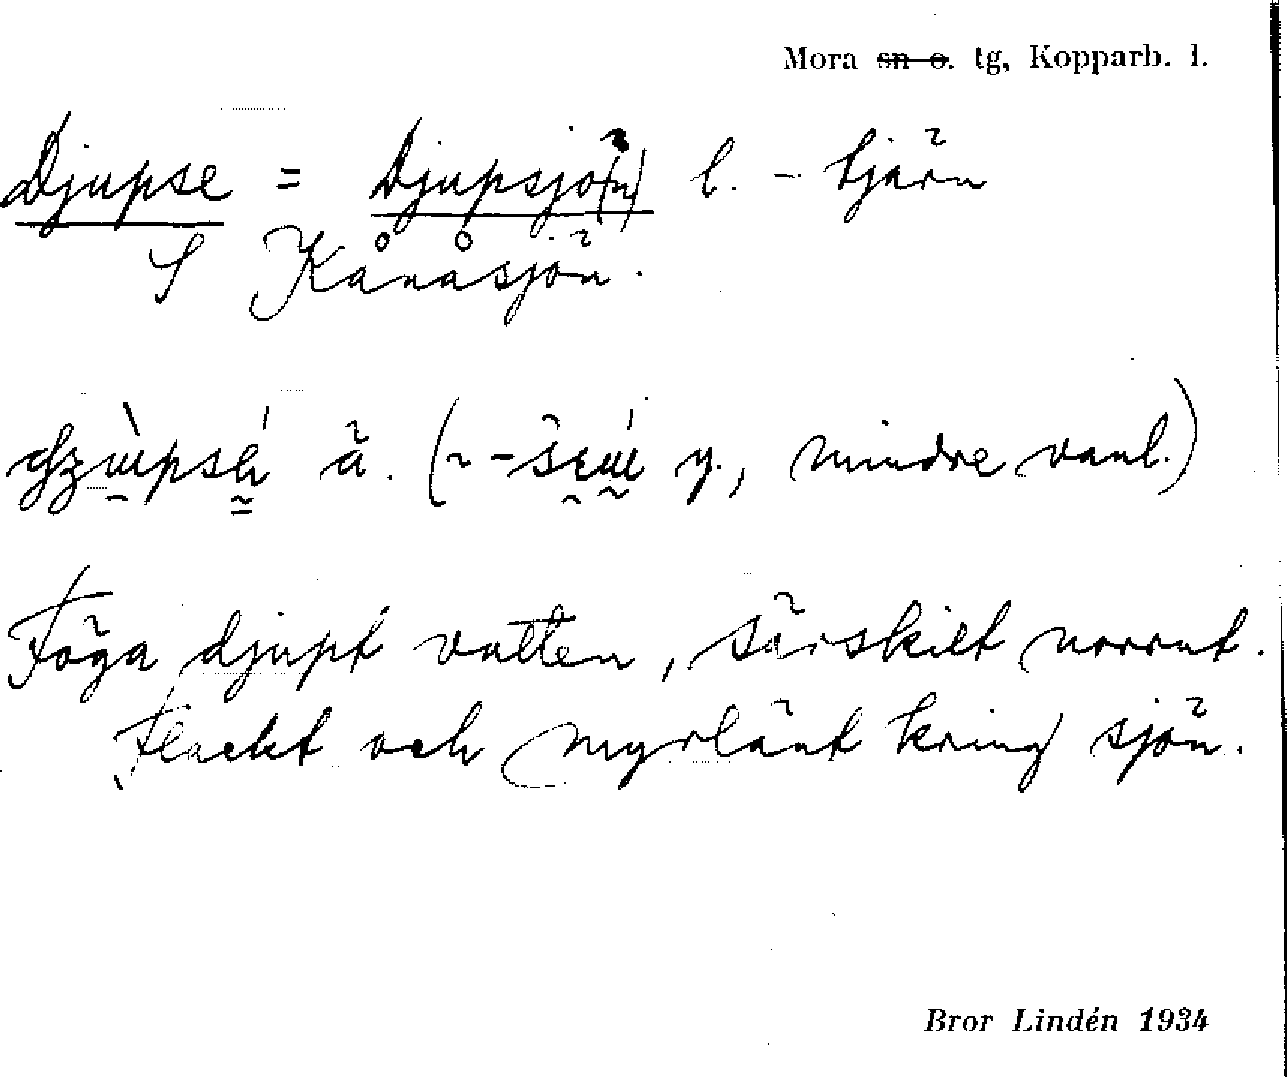 Mora sn o. tg, Kopparb. l.
Djupse = Djupsjö(n) l. - tjärn
S Kånåsjön.
ä. ( y., mindre vanl.)
Föga djupt vatten, särskilt norrut.
Flackt och myrlänt kring sjön.
Bror Lindén 1934